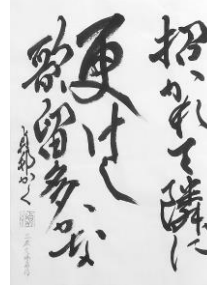 招かれて隣に
更けし
歌留多かな